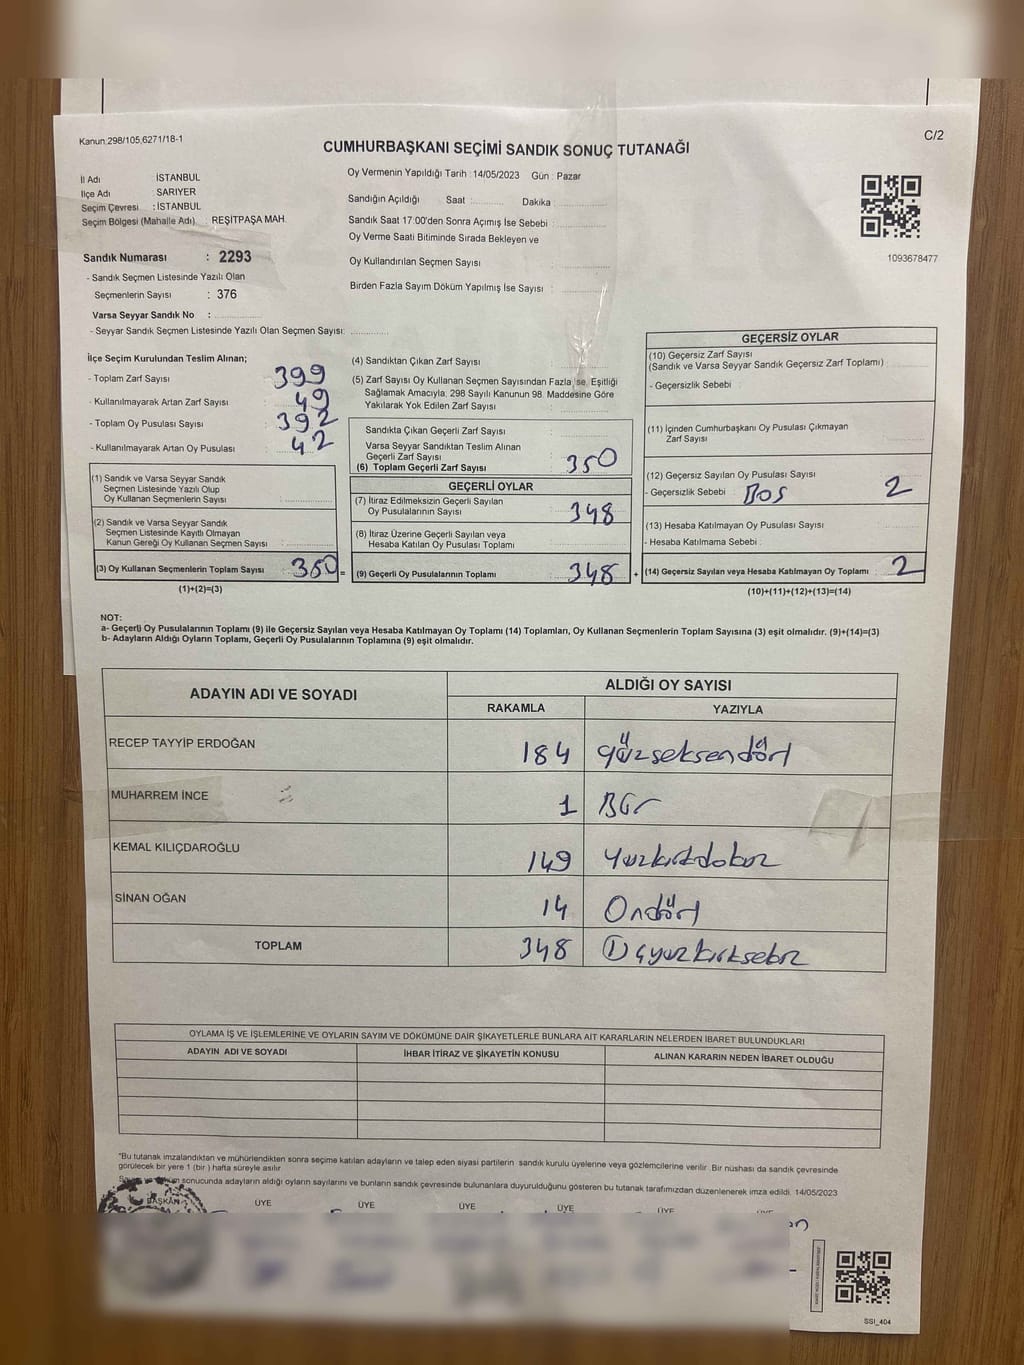 Kanun,298/105,6271/18-1
C/2
CUMHURBAŞKANI SEÇİMİ SANDIK SONUÇ TUTANAĞI
İl Adı İSTANBUL
İlçe Adı SARIYER
Seçim Çevresi : İSTANBUL
Seçim Bölgesi (Mahalle Adı). : REŞİTPAŞA MAH.
Sandık Numarası : 2293
- Sandık Seçmen Listesinde Yazılı Olan
Seçmenlerin Sayısı : 376
Varsa Seyyar Sandık No :
- Seyyar Sandık Seçmen Listesinde Yazılı Olan Seçmen Sayısı:
Oy Vermenin Yapıldığı Tarih : 14/05/2023 Gün : Pazar
Sandığın Açıldığı Saat : Dakika :
Sandık Saat 17:00'den Sonra Açımış İse Sebebi :
Oy Verme Saati Bitiminde Sırada Bekleyen ve
Oy Kullandırılan Seçmen Sayısı
Birden Fazla Sayım Döküm Yapılmış İse Sayısı :
1093678477
İlçe Seçim Kurulundan Teslim Alınan;
- Toplam Zarf Sayısı 399
- Kullanılmayarak Artan Zarf Sayısı 49
- Toplam Oy Pusulası Sayısı 392
- Kullanılmayarak Artan Oy Pusulası 42
(1) Sandık ve Varsa Seyyar Sandık
Seçmen Listesinde Yazılı Olup
Oy Kullanan Seçmenlerin Sayısı
(2) Sandık ve Varsa Seyyar Sandık
Seçmen Listesinde Kayıtlı Olmayan
Kanun Gereği Oy Kullanan Seçmen Sayısı
(3) Oy Kullanan Seçmenlerin Toplam Sayısı 350 =
(1)+(2)=(3)
(4) Sandıktan Çıkan Zarf Sayısı
(5) Zarf Sayısı Oy Kullanan Seçmen Sayısından Fazla ise, Eşitliği
Sağlamak Amacıyla; 298 Sayılı Kanunun 98. Maddesine Göre
Yakılarak Yok Edilen Zarf Sayısı
Sandıkta Çıkan Geçerli Zarf Sayısı
Varsa Seyyar Sandıktan Teslim Alınan
Geçerli Zarf Sayısı
(6) Toplam Geçerli Zarf Sayısı 350
GEÇERLİ OYLAR
(7) İtiraz Edilmeksizin Geçerli Sayılan
Oy Pusulalarının Sayısı 348
(8) İtiraz Üzerine Geçerli Sayılan veya
Hesaba Katılan Oy Pusulası Toplamı
(9) Geçerli Oy Pusulalarının Toplamı 348 +
GEÇERSİZ OYLAR
(10) Geçersiz Zarf Sayısı
(Sandık ve Varsa Seyyar Sandık Geçersiz Zarf Toplamı)
- Geçersizlik Sebebi
(11) İçinden Cumhurbaşkanı Oy Pusulası Çıkmayan
Zarf Sayısı
(12) Geçersiz Sayılan Oy Pusulası Sayısı
- Geçersizlik Sebebi BOS 2
(13) Hesaba Katılmayan Oy Pusulası Sayısı
- Hesaba Katılmama Sebebi
(14) Geçersiz Sayılan veya Hesaba Katılmayan Oy Toplamı 2
(10)+(11)+(12)+(13)=(14)
NOT:
a- Geçerli Oy Pusulalarının Toplamı (9) ile Geçersiz Sayılan veya Hesaba Katılmayan Oy Toplamı (14) Toplamları, Oy Kullanan Seçmenlerin Toplam Sayısına (3) eşit olmalıdır. (9)+(14)=(3)
b- Adayların Aldığı Oyların Toplamı, Geçerli Oy Pusulalarının Toplamına (9) eşit olmalıdır.
ADAYIN ADI VE SOYADI
ALDIĞI OY SAYISI
RAKAMLA YAZIYLA
RECEP TAYYİP ERDOĞAN 184 yüzseksendört
MUHARREM İNCE 1 Bir
KEMAL KILIÇDAROĞLU 149 Yuzkırkdokuz
SİNAN OĞAN 14 Ondört
TOPLAM 348
OYLAMA İŞ VE İŞLEMLERİNE VE OYLARIN SAYIM VE DÖKÜMÜNE DAİR ŞİKAYETLERLE BUNLARA AİT KARARLARIN NELERDEN İBARET BULUNDUKLARI
ADAYIN ADI VE SOYADI İHBAR İTİRAZ VE ŞİKAYETİN KONUSU ALINAN KARARIN NEDEN İBARET OLDUĞU
"Bu tutanak imzalandıktan ve mühürlendikten sonra seçime katılan adayların ve talep eden siyasi partilerin sandık kurulu üyelerine veya gözlemcilerine verilir. Bir nüshası da sandık çevresinde
görülecek bir yere 1 (bir ) hafta süreyle asılır
sonucunda adayların aldığı oyların sayılarını ve bunların sandık çevresinde bulunanlara duyurulduğunu gösteren bu tutanak tarafımızdan düzenlenerek imza edildi. 14/05/2023
BAŞKAN ÜYE ÜYE ÜYE ÜYE ÜYE
SSI_404